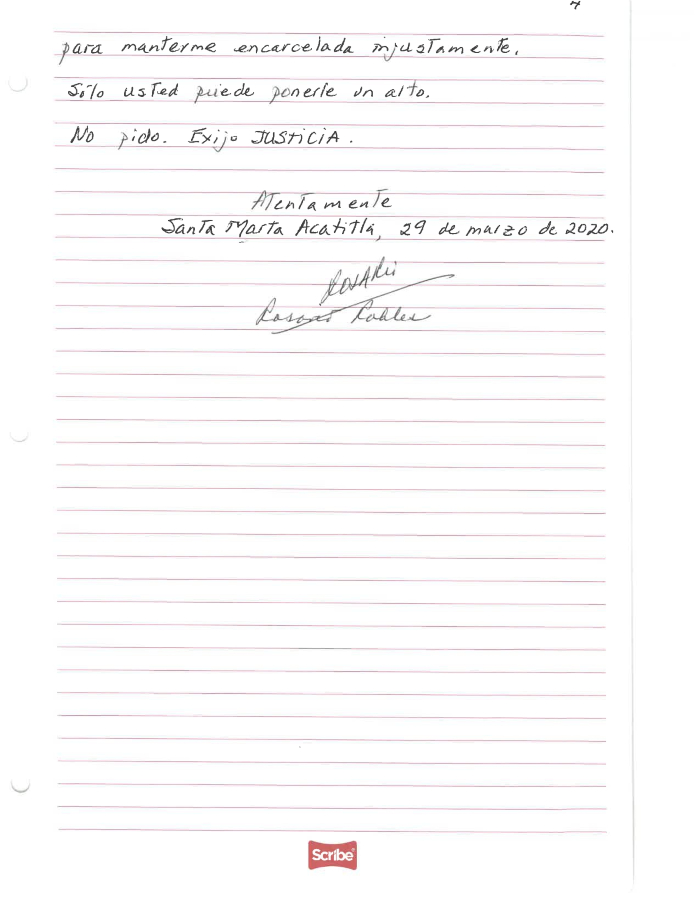 7
para manterme encarcelada injustamente.
Sólo usted puede ponerle un alto.
No pido. Exijo JUSTICIA.
Atentamente
Santa Marta Acatitla, 29 de marzo de 2020.
ROSARIO
Rosario Robles
Scribe®